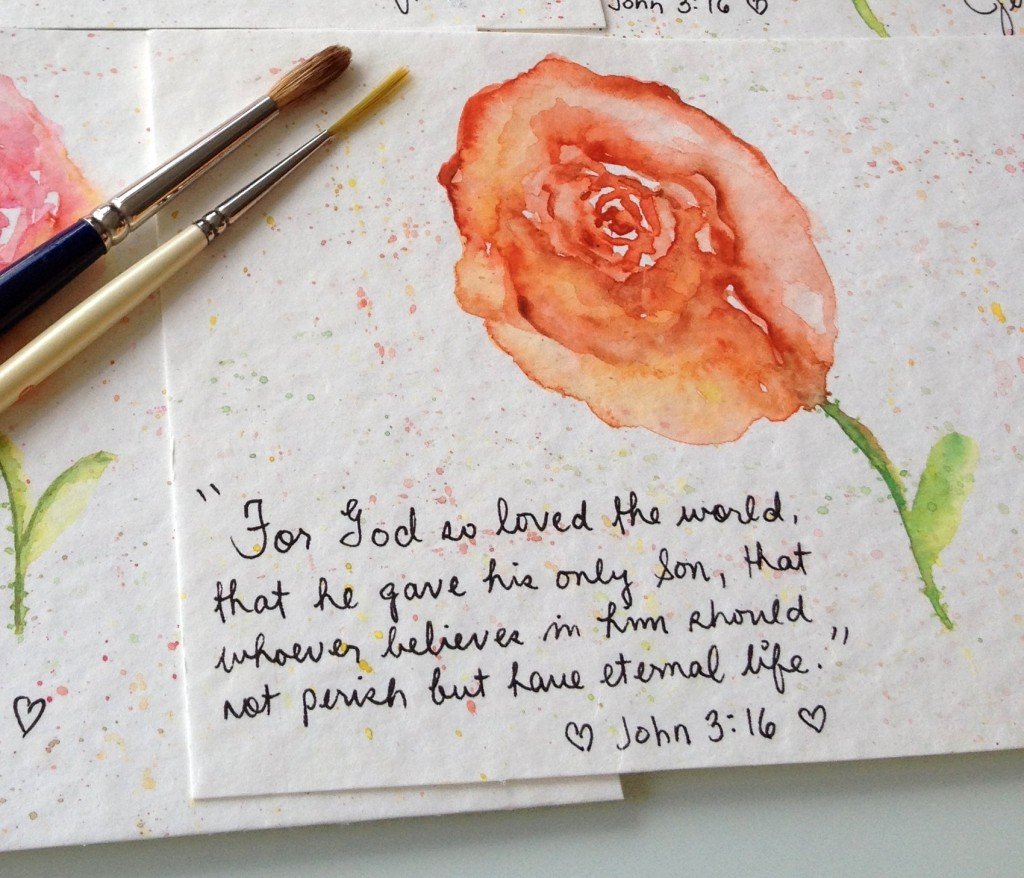 John 3:16 ♡
"For God so loved the world,
that he gave his only Son, that
whoever believes in him should
not perish but have eternal life."
♡ John 3:16 ♡
♡